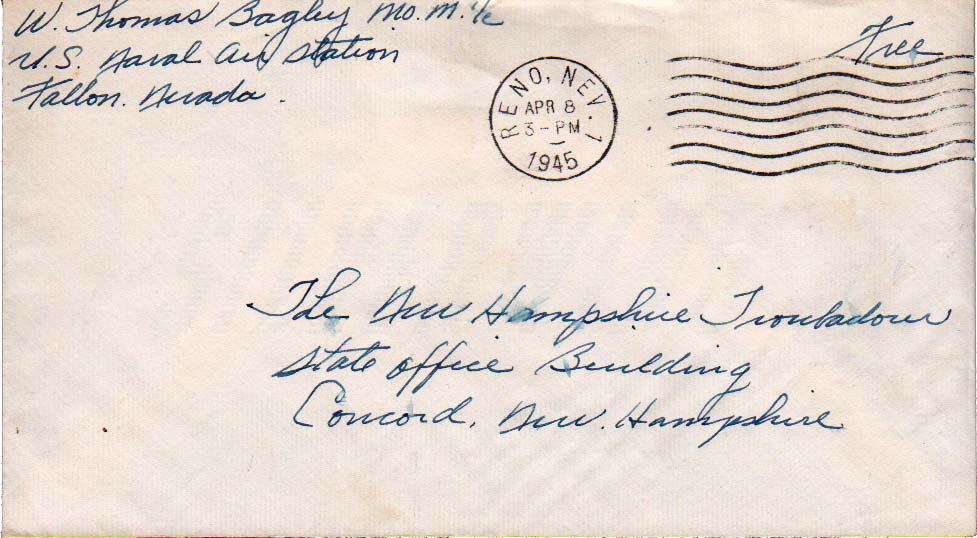 W. Thomas Bagley Mo. M. 1/c
U.S. Naval Air Station
Fallon. Nevada.
Free
RENO, NEV. 1
APR 8
3-PM
1945
The New Hampshire Troubadour
State Office Building
Concord, New. Hampshire